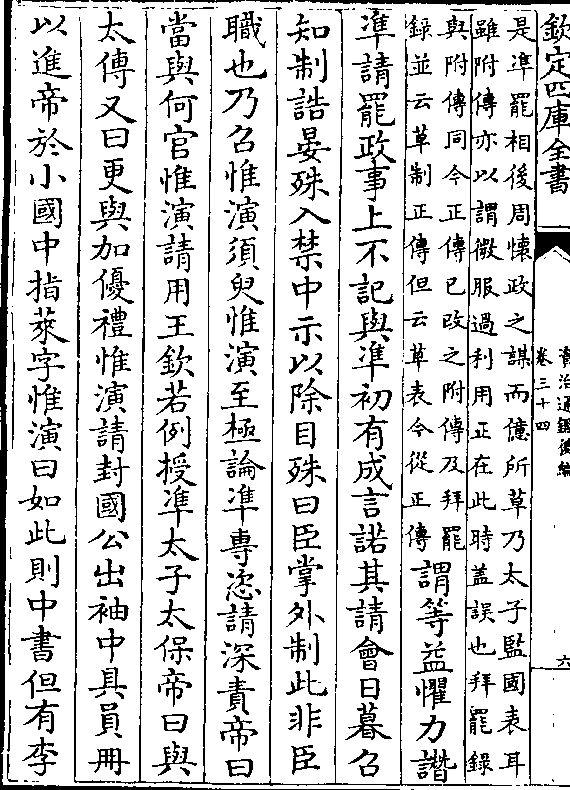 欽定四庫全書
資治通鑑後編
卷三十四
六
是準罷相後周懷政之謀而億所草乃太子監國表耳
雖附傳亦以謂微服過利用正在此時蓋誤也拜罷錄
與附傳同今正傳已改之附傳及拜罷
錄並云草制正傳但云草表今從正傳
謂等益懼力譖
準請罷政事上不記與準初有成言諾其請會日暮召
知制誥晏殊入禁中示以除目殊曰臣掌外制此非臣
職也乃召惟演須臾惟演至極論準專恣請深責帝曰
當與何官惟演請用王欽若例授準太子太保帝曰與
太傅又曰更與加優禮惟演請封國公出袖中具員冊
以進帝於小國中指萊字惟演曰如此則中書但有李